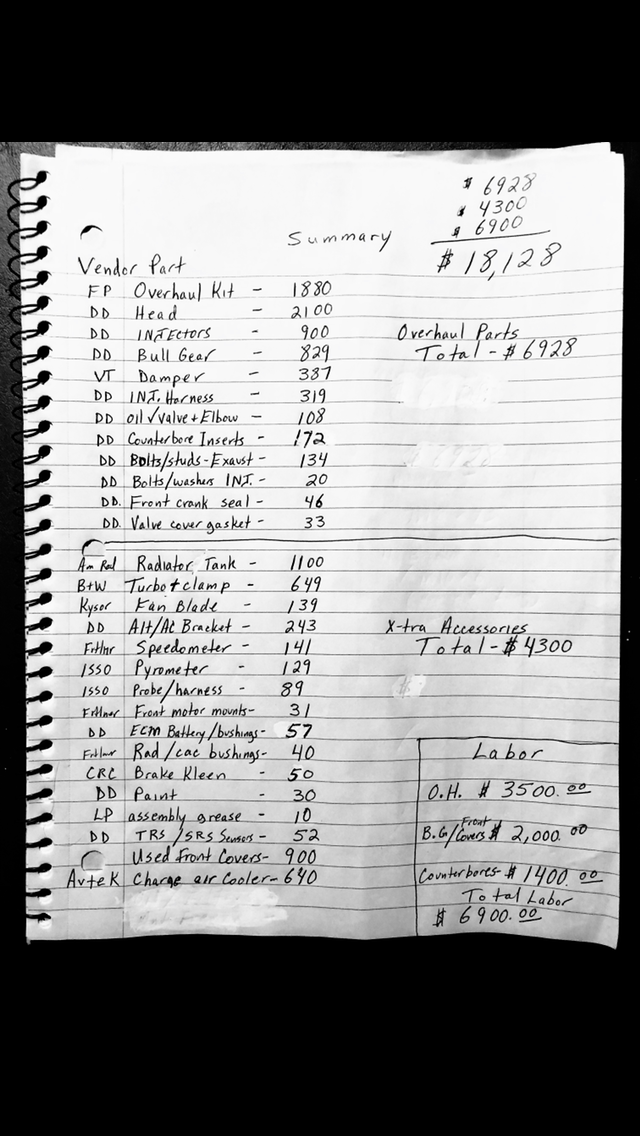 $ 6928
$ 4300
$ 6900
$ 18,128
Summary
Vendor Part
FP Overhaul Kit - 1880
DD Head - 2100
DD INJEctors - 900
DD Bull Gear - 829
VT Damper - 387
DD INJ. Harness - 319
DD oil √ valve + Elbow - 108
DD Counterbore Inserts - 172
DD Bolts/studs-Exaust - 134
DD Bolts/washers INJ. - 20
DD. Front crank seal - 46
DD. Valve cover gasket - 33
Overhaul Parts
Total - $ 6928
Am Rad Radiator Tank - 1100
B+W Turbo + clamp - 649
Kysor Fan Blade - 139
DD Alt/AC Bracket - 243
Frtlnr Speedometer - 141
ISSO Pyrometer - 129
ISSO Probe/harness - 89
Frtlnr Front motor mounts - 31
DD ECM Battery/bushings - 57
Frtlnr Rad/cac bushings - 40
CRC Brake Kleen - 50
DD Paint - 30
LP assembly grease - 10
DD TRS/SRS Sensors - 52
Used Front Covers - 900
Avtek Charge air Cooler - 640
X-tra Accessories
Total - $ 4300
Labor
O.H. $ 3500.00
B.G/Front Covers $ 2,000.00
Counterbores - $ 1400.00
Total Labor
$ 6900.00